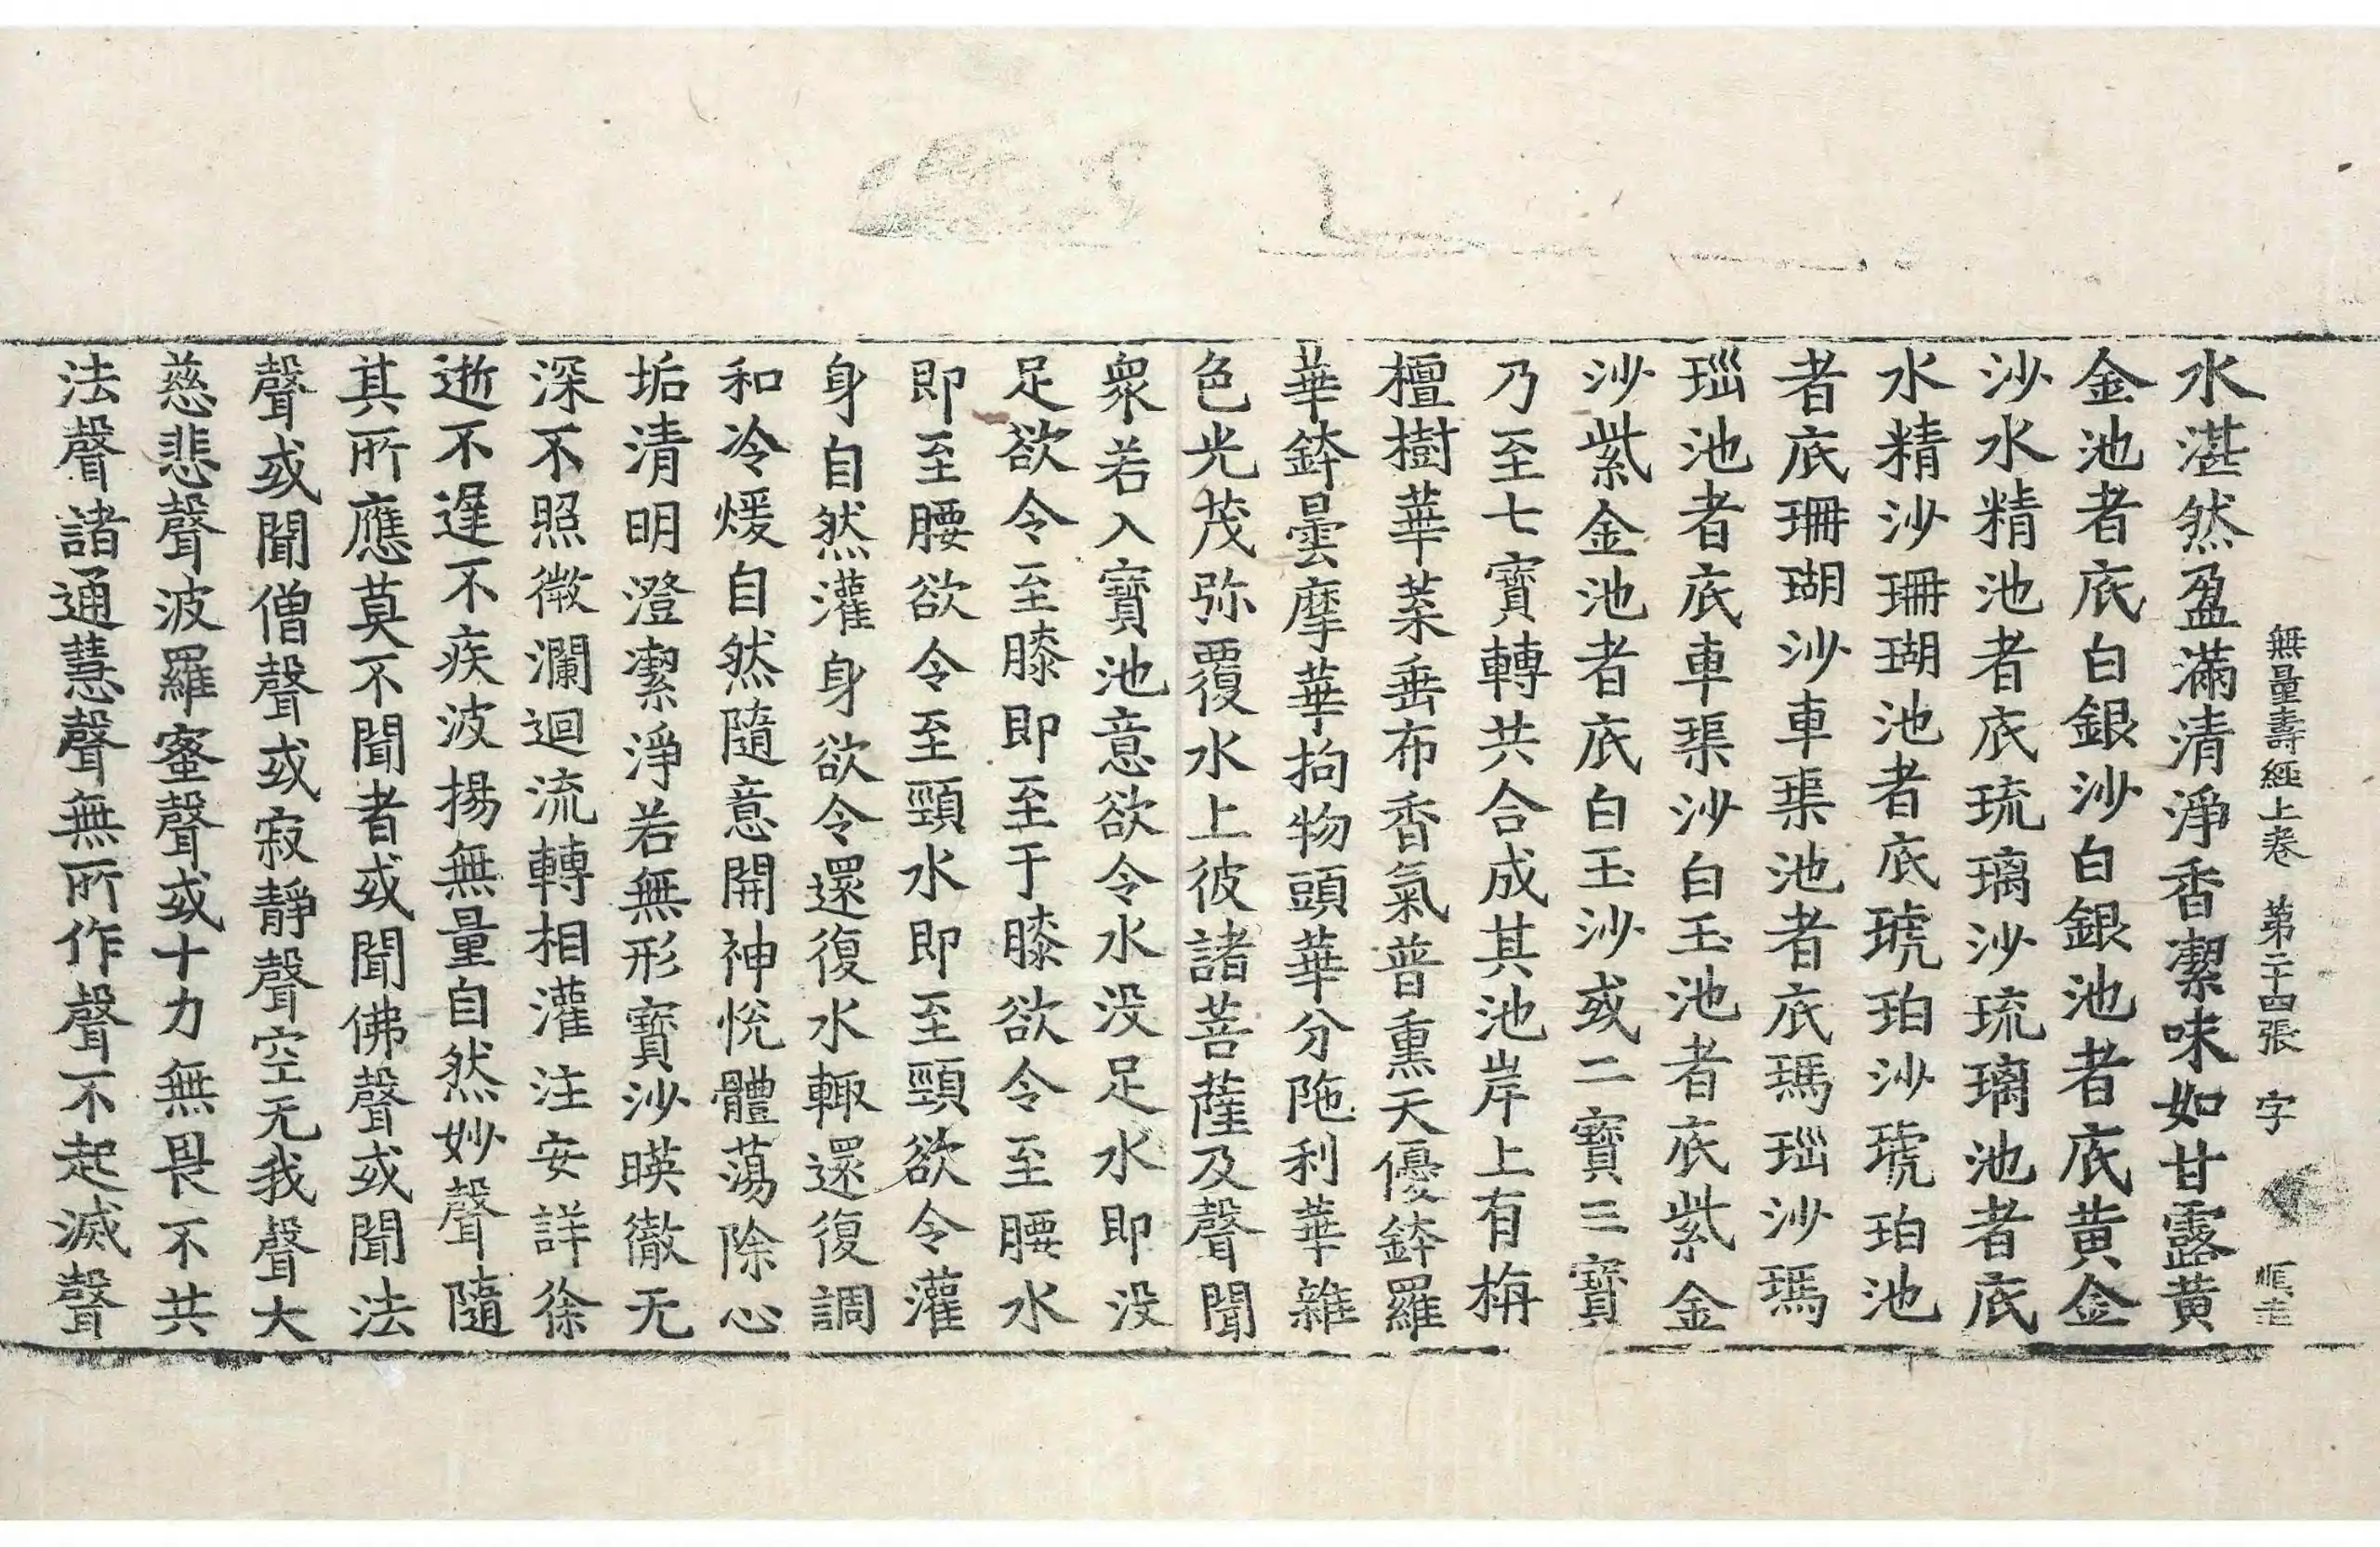 無量壽經上卷 第二十四張 字
水湛然盈滿清淨香潔味如甘露黄
金池者底白銀沙白銀池者底黄金
沙水精池者底琉璃沙琉璃池者底
水精沙珊瑚池者底琥珀沙琥珀池
者底珊瑚沙車𤦲池者底瑪瑙沙瑪
瑙池者底車𤦲沙白玉池者底紫金
沙紫金池者底白玉沙或二寶三寶
乃至七寶轉共合成其池岸上有栴
檀樹華葉垂布香氣普熏天優鉢羅
華鉢曇摩華拘物頭華分陁利華雜
色光茂弥覆水上彼諸菩薩及聲聞
衆若入寶池意欲令水没足水即没
足欲令至膝即至于膝欲令至腰水
即至腰欲令至頸水即至頸欲令灌
身自然灌身欲令還復水輙還復調
和冷煖自然隨意開神悅體蕩除心
垢清明澄潔淨若無形寶沙暎徹无
深不照微瀾迴流轉相灌注安詳徐
逝不遟不疾波揚無量自然妙聲隨
其所應莫不聞者或聞佛聲或聞法
聲或聞僧聲或寂靜聲空无我聲大
慈悲聲波羅蜜聲或十力無畏不共
法聲諸通慧聲無所作聲不起滅聲